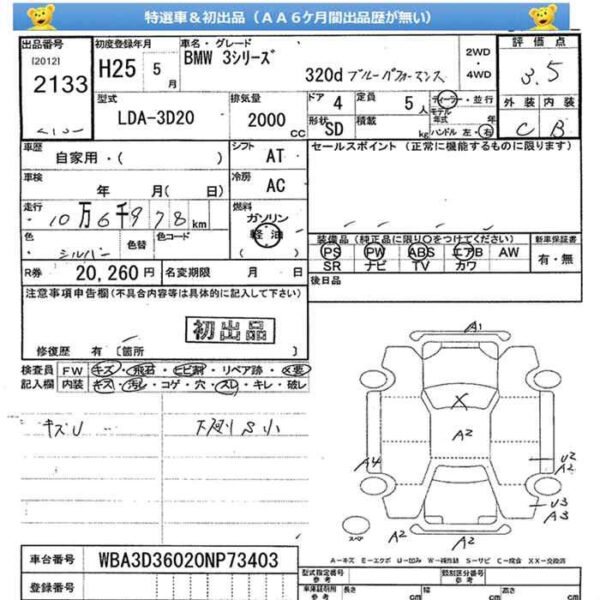 特選車＆初出品（ＡＡ６ケ月間出品歴が無い）
出品番号 初度登録年月 車名・グレード 2WD 評価点
[2012] H25 5 月 BMW 3シリーズ ・
2133 320d ブルーパフォーマンス 4WD 3.5
型式 排気量 ドア 4 定員 5 人 ディーラー・並行 外装 内装
LDA-3D20 2000 CC 形状 SD 積載 kg モデル年式 年 C B
ハンドル 左・右
車歴 シフト AT セールスポイント（正常に機能するものに限ります）
自家用・( )
車検 年 月( 日) 冷房 AC
走行 10万6千978 km 燃料 ガソリン
軽油
( )
色 シルバー 色替 色コード 装備品（純正品に限り○をつけてください） 新車保証書
PS PW ABS エアB AW 有・無
R券 20,260円 名変期限 月 日 SR ナビ TV カワ
注意事項申告欄(不具合内容等は具体的に記入して下さい) 後日品
初出品
修復歴 有〔箇所 〕
検査員 FW キズ・飛石・ヒビ割・リペア跡・X要
記入欄 内装 キズ・汚レ・コゲ・穴・スレ・キレ・破レ
キズU 下廻りS小
A1
X
A2
A4
U2
A2
U3
A3
スペア
A2 A2
A=キズ E=エクボ U=凹み W=補修跡 S=サビ C=腐食 XX=交換済
車台番号 WBA3D36020NP73403
型式指定番号 参考 類別区分番号 参考
登録番号 車庫証明用 参考 長さ cm 幅 cm 高さ cm